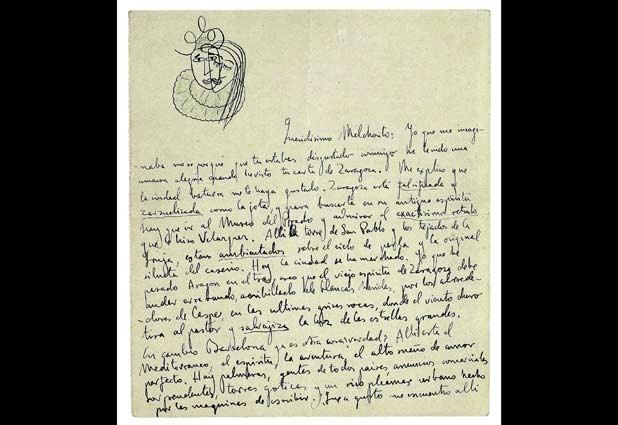 Queridísimo Melchorito: Yo que me imagi-
-naba no se porqué que tu estabas disgustado conmigo he tenido una
inmensa alegria cuando he visto tu carta de Zaragoza. Me explico que
la ciudad baturra no te haya gustado. Zaragoza está falsificada y
zarzuelizada como la jota y para buscarla en su antiguo espíritu
hay que ir al Museo del Prado y admirar el exactísimo retrato
que hizo Velázquez. Alli la torre de San Pablo y los tejados de la
lonja, estan ambientados sobre el cielo de perla y la original
silueta del caserio. Hoy la ciudad se ha marchado. Yo que he
pasado Aragon en el tren, creo que el viejo espíritu de Zaragoza debe
andar errabundo, de blancas heridas, por los alrede-
-dores de Caspe, en las ultimas grises rocas, donde el viento duro
tira al pastor y salvajiza la luz de las estrellas grandes.
En cambio Barcelona ya es otra cosa ¿verdad? Alli está el
Mediterraneo, el espíritu, la aventura, el alto sueño de amor
perfecto. Hay palmeras, gentes de todos paises, anuncios comerciales
sorprendentes, torres goticas y un rico pleamar urbano hecho
por las maquinas de escribir. ¡ a gusto me encuentro alli